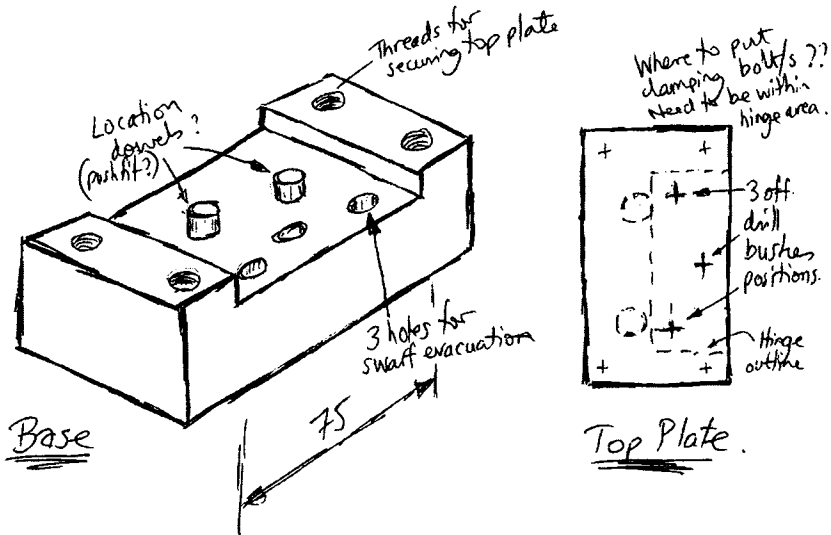 Threads for
securing top plate
Location
dowels?
(push fit?)
3 holes for
swarf evacuation
75
Base
Where to put
clamping bolt/s ??
Need to be within
hinge area.
3 off
drill
bushes
positions.
Hinge
outline
Top Plate.